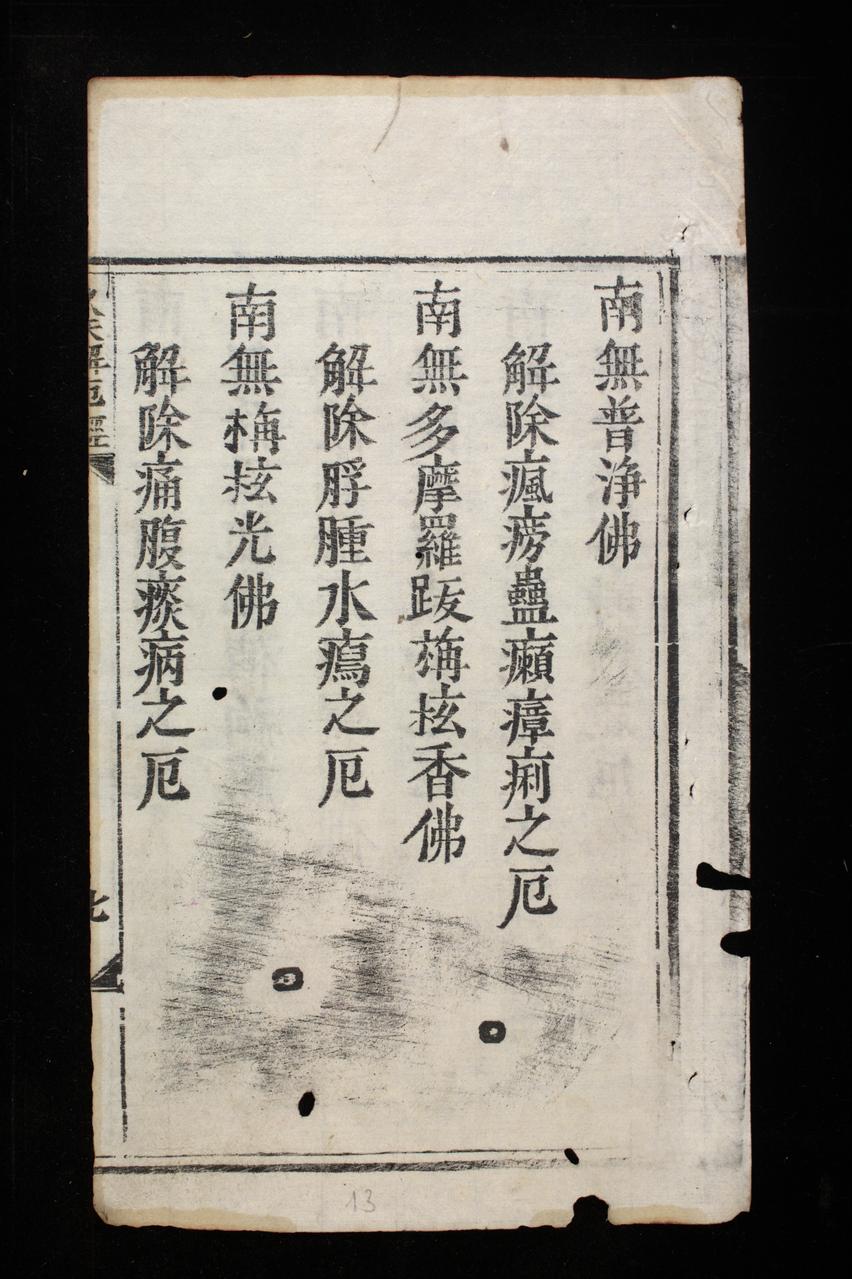 南無普淨佛
解除瘋痨蠱癩瘴痢之厄
南無多摩羅跋栴𢫎香佛
解除脬腫水瘑之厄
南無栴𢫎光佛
解除痛腹痰病之厄
解厄經
七
13